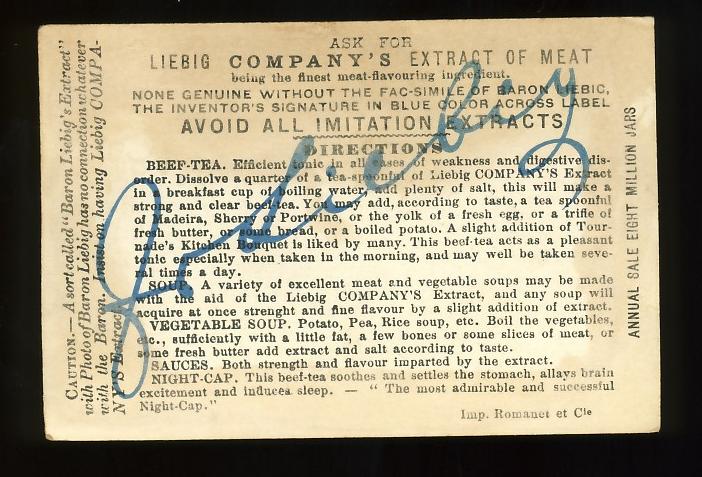 ASK FOR
LIEBIG COMPANY'S EXTRACT OF MEAT
being the finest meat-flavouring ingredient.
NONE GENUINE WITHOUT THE FAC-SIMILE OF BARON LIEBIG,
THE INVENTOR'S SIGNATURE IN BLUE COLOR ACROSS LABEL
AVOID ALL IMITATION EXTRACTS
DIRECTIONS
BEEF-TEA. Efficient tonic in all cases of weakness and digestive dis-
order. Dissolve a quarter of a tea-spoonful of Liebig COMPANY'S Extract
in a breakfast cup of boiling water, add plenty of salt, this will make a
strong and clear beef-tea. You may add, according to taste, a tea spoonful
of Madeira, Sherry or Portwine, or the yolk of a fresh egg, or a trifle of
fresh butter, or some bread, or a boiled potato. A slight addition of Tour-
nade's Kitchen Bouquet is liked by many. This beef-tea acts as a pleasant
tonic especially when taken in the morning, and may well be taken seve-
ral times a day.
SOUP. A variety of excellent meat and vegetable soups may be made
with the aid of the Liebig COMPANY'S Extract, and any soup will
acquire at once strenght and fine flavour by a slight addition of extract.
VEGETABLE SOUP. Potato, Pea, Rice soup, etc. Boil the vegetables,
etc., sufficiently with a little fat, a few bones or some slices of meat, or
some fresh butter add extract and salt according to taste.
SAUCES. Both strength and flavour imparted by the extract.
NIGHT-CAP. This beef-tea soothes and settles the stomach, allays brain
excitement and induces sleep. — "The most admirable and successful
Night-Cap."
Imp. Romanet et Cie
CAUTION.—A sort called "Baron Liebig's Extract"
with Photo of Baron Liebig has no connection whatever
with the Baron. Insist on having Liebig COMPA-
NY'S Extract
ANNUAL SALE EIGHT MILLION JARS
J. v. Liebig